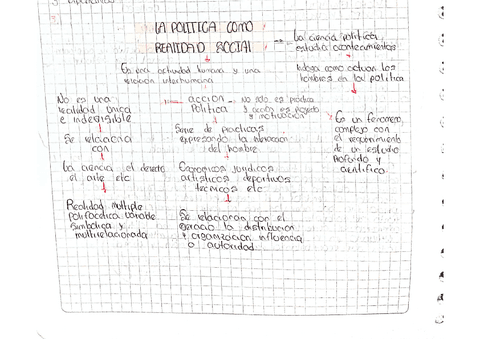 LA POLITICA COMO
REALIDAD SOCIAL
La ciencia politica,
estudia acontecimientos
Es una actividad humana y una
relación interhumana
como actuan los
hombres en la politica
No es una
realidad unica
e indevisible
acción
Politica
No solo es practica
y acción es
y motivación
Es un fenomeno,
complejo con
el requerimiento
de un estudio
profundo y
cientifico
Se relaciona
con
Serie de practicas
expresando la
del hombre
La ciencia, el derecho
el arte etc
juridicos
artisticos deportivos
tecnicos etc
Realidad multiple
polifacetica variable
simbolica y
multirelacionada
Se relacionan con el
ejercicio la distribución
y organización influencia
o autoridad